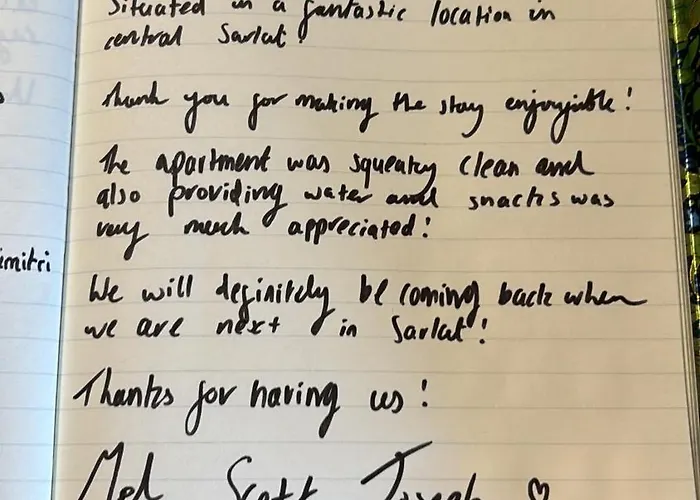 Situated in a fantastic location in
central Sarlat!
Thank you for making the stay enjoyable!
The apartment was squeaky clean and
also providing water and snacks was
very much appreciated!
imitri
We will definitely be coming back when
we are next in Sarlat!
Thanks for having us!
Mel Scott Joseph ♡